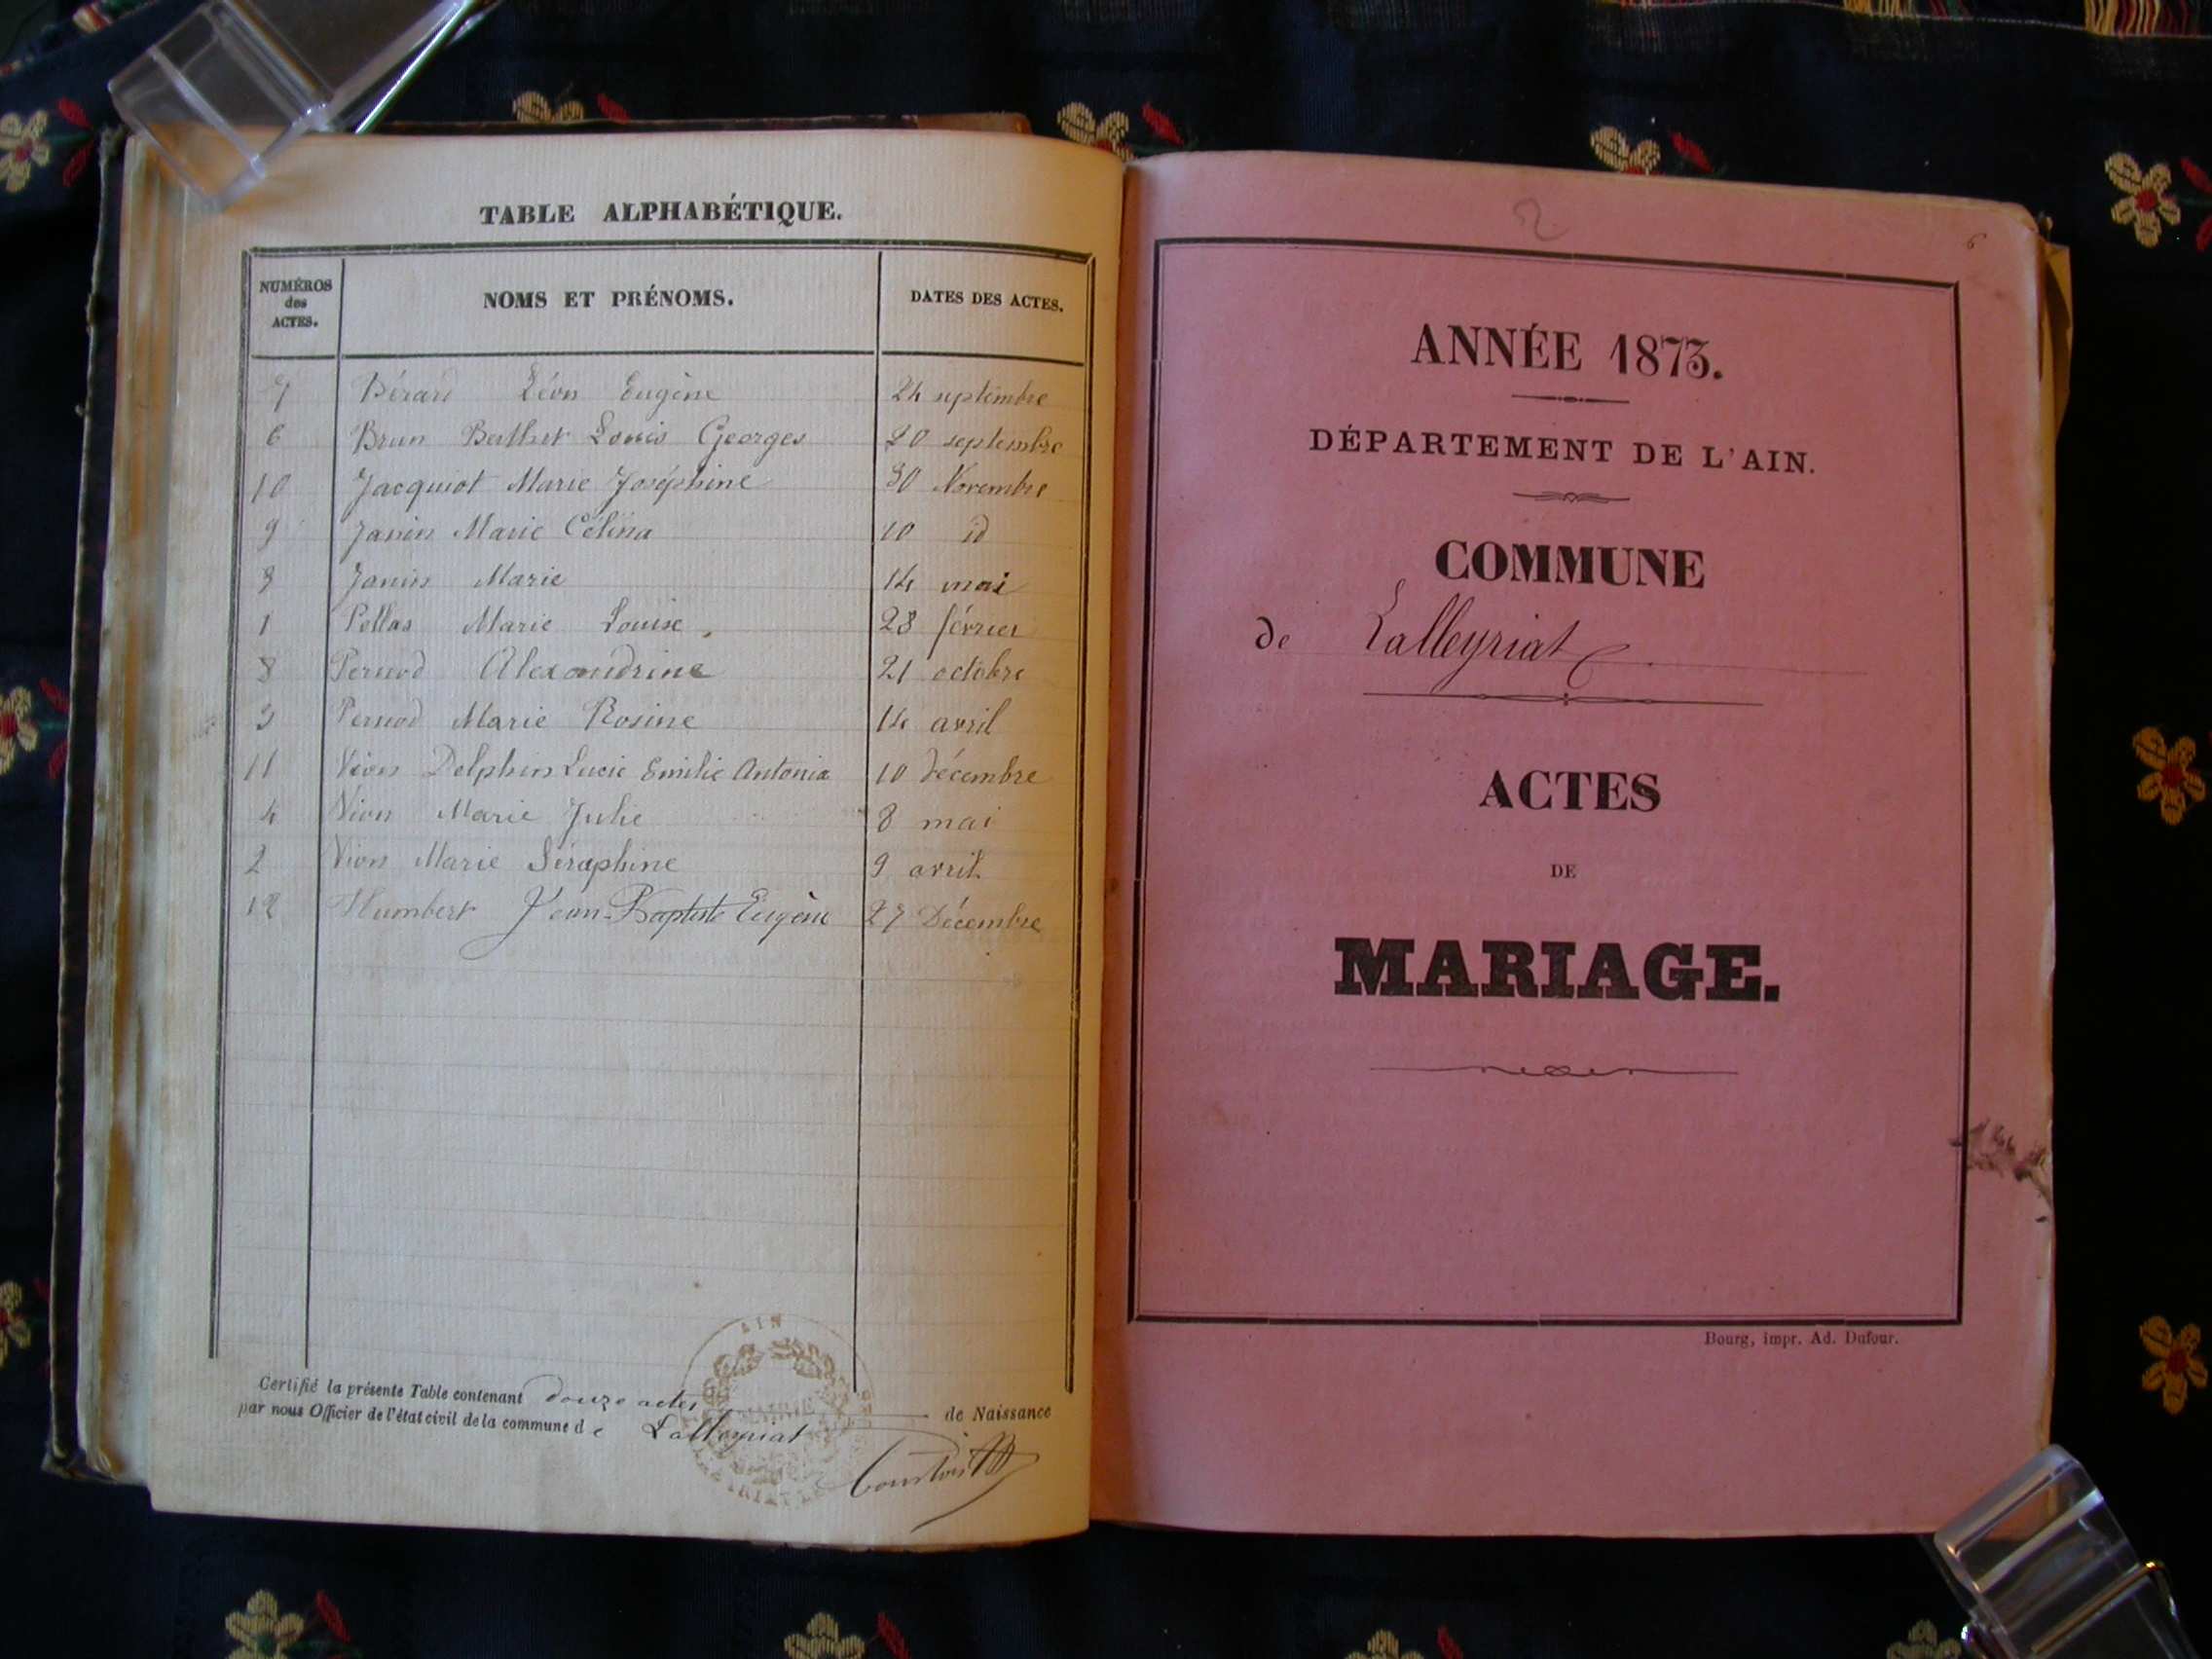 TABLE ALPHABÉTIQUE.
NUMÉROS
des
ACTES.
NOMS ET PRÉNOMS.
DATES DES ACTES.
7 Bérard Léon Eugène 24 septembre
6 Brun Berthet Louis Georges 20 septembre
10 Jacquiot Marie Joséphine 30 Novembre
9 Janin Marie Célina 10 id
Janin Marie 14 mai
1 Pellas Marie Louise 28 février
8 Pernod Alexandrine 21 octobre
3 Pernod Marie Rosine 14 avril
11 Vion Delphin Lucie Emilie Antonia 10 décembre
4 Vion Marie Julie 8 mai
2 Vion Marie Séraphine 9 avril
12 Humbert Jean-Baptiste Eugène 27 Décembre
Certifié la présente Table contenant douze actes de Naissance
par nous Officier de l'état civil de la commune de Lalleyriat
AIN
MAIRIE
2
6
ANNÉE 1873.
DÉPARTEMENT DE L'AIN.
COMMUNE
de Lalleyriat
ACTES
DE
MARIAGE.
Bourg, impr. Ad. Dufour.